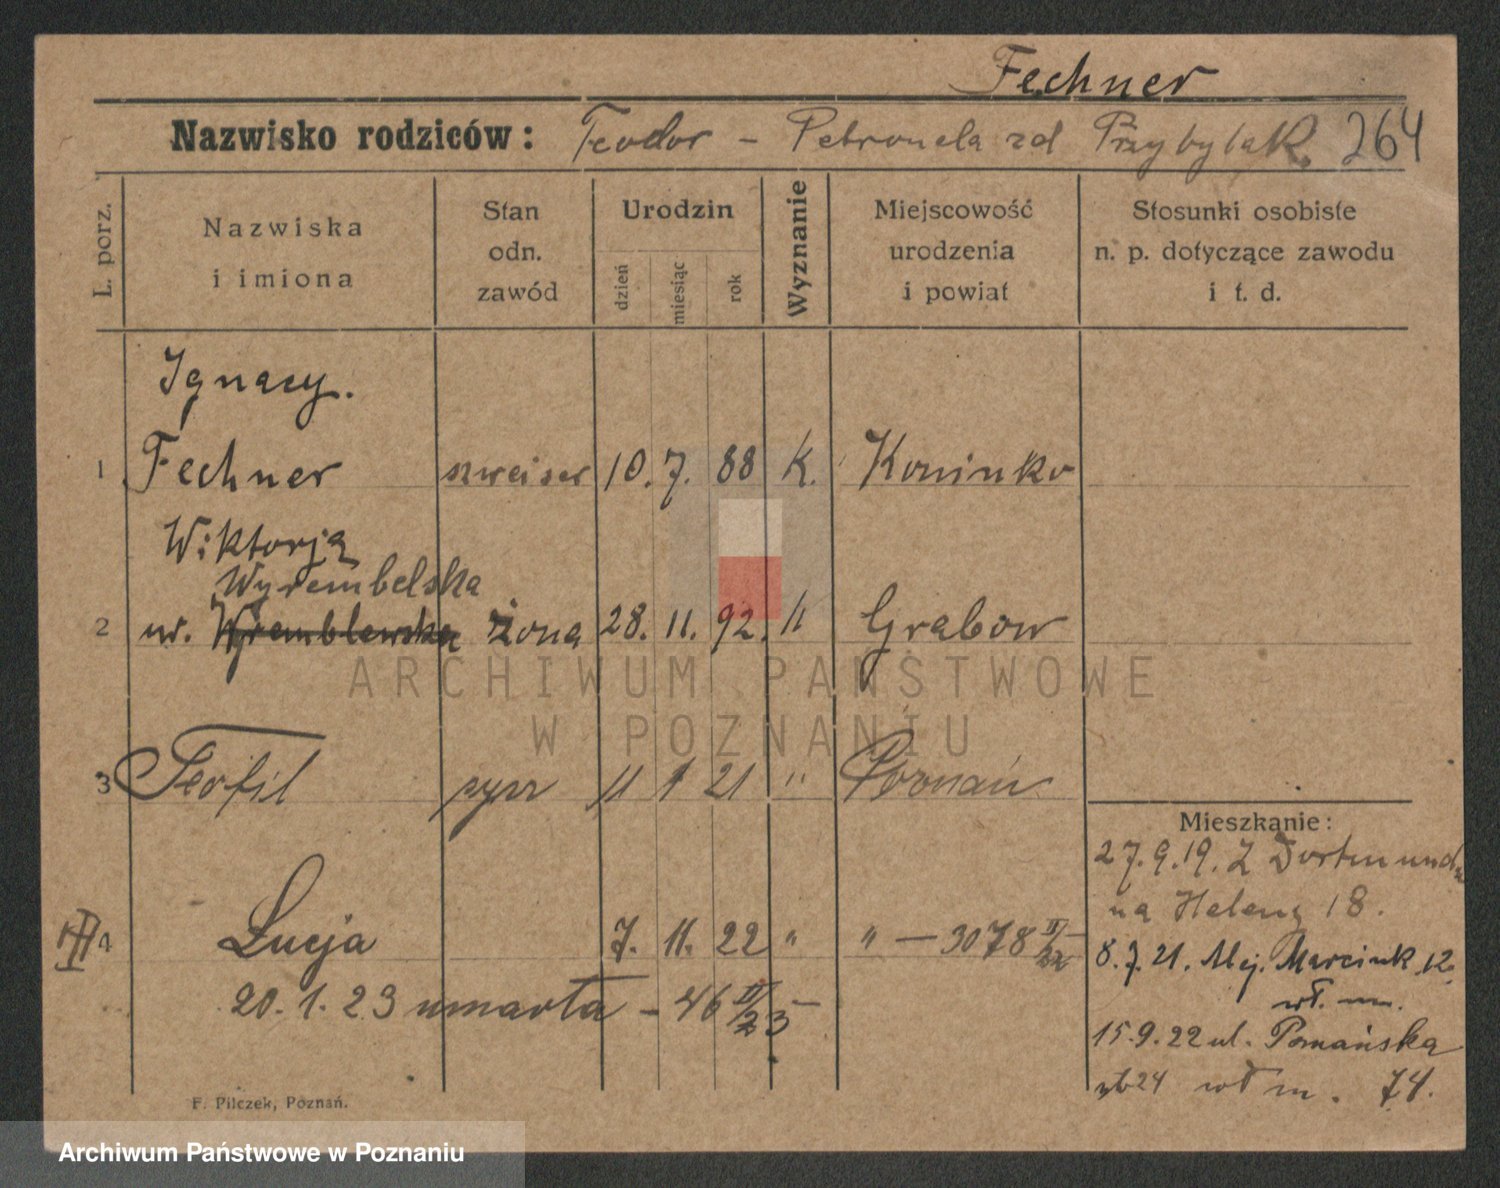 Fechner
Nazwisko rodziców: Teodor - Petronela zd Przybylak. 264
L. porz.
Nazwiska i imiona
Stan odn. zawód
Urodzin
dzień
miesiąc
rok
Wyznanie
Miejscowość urodzenia i powiat
Stosunki osobiste n. p. dotyczące zawodu i t. d.
Ignacy.
1 Fechner szweiser 10. 7. 88 K. Koninko
Wiktorja
Wyrembelska
2 ur. Wyremblewska żona 28. 11. 92. " Grabow
ARCHIWUM PAŃSTWOWE
W POZNANIU
3 Teofil syn 11 1 21 " Poznań
Mieszkanie:
27.9.19. Z Dortmundu
na Heleny 18.
III 4 Lucja 7. 11. 22 " " — 3078 II/22 —
8.7.21. Alej. Marcink. 12.
wł. m.
20.1.23 umarła - 46 II/23 —
15.9.22 ul. Poznańska
24 wł m. 74.
F. Pilczek, Poznań.
Archiwum Państwowe w Poznaniu